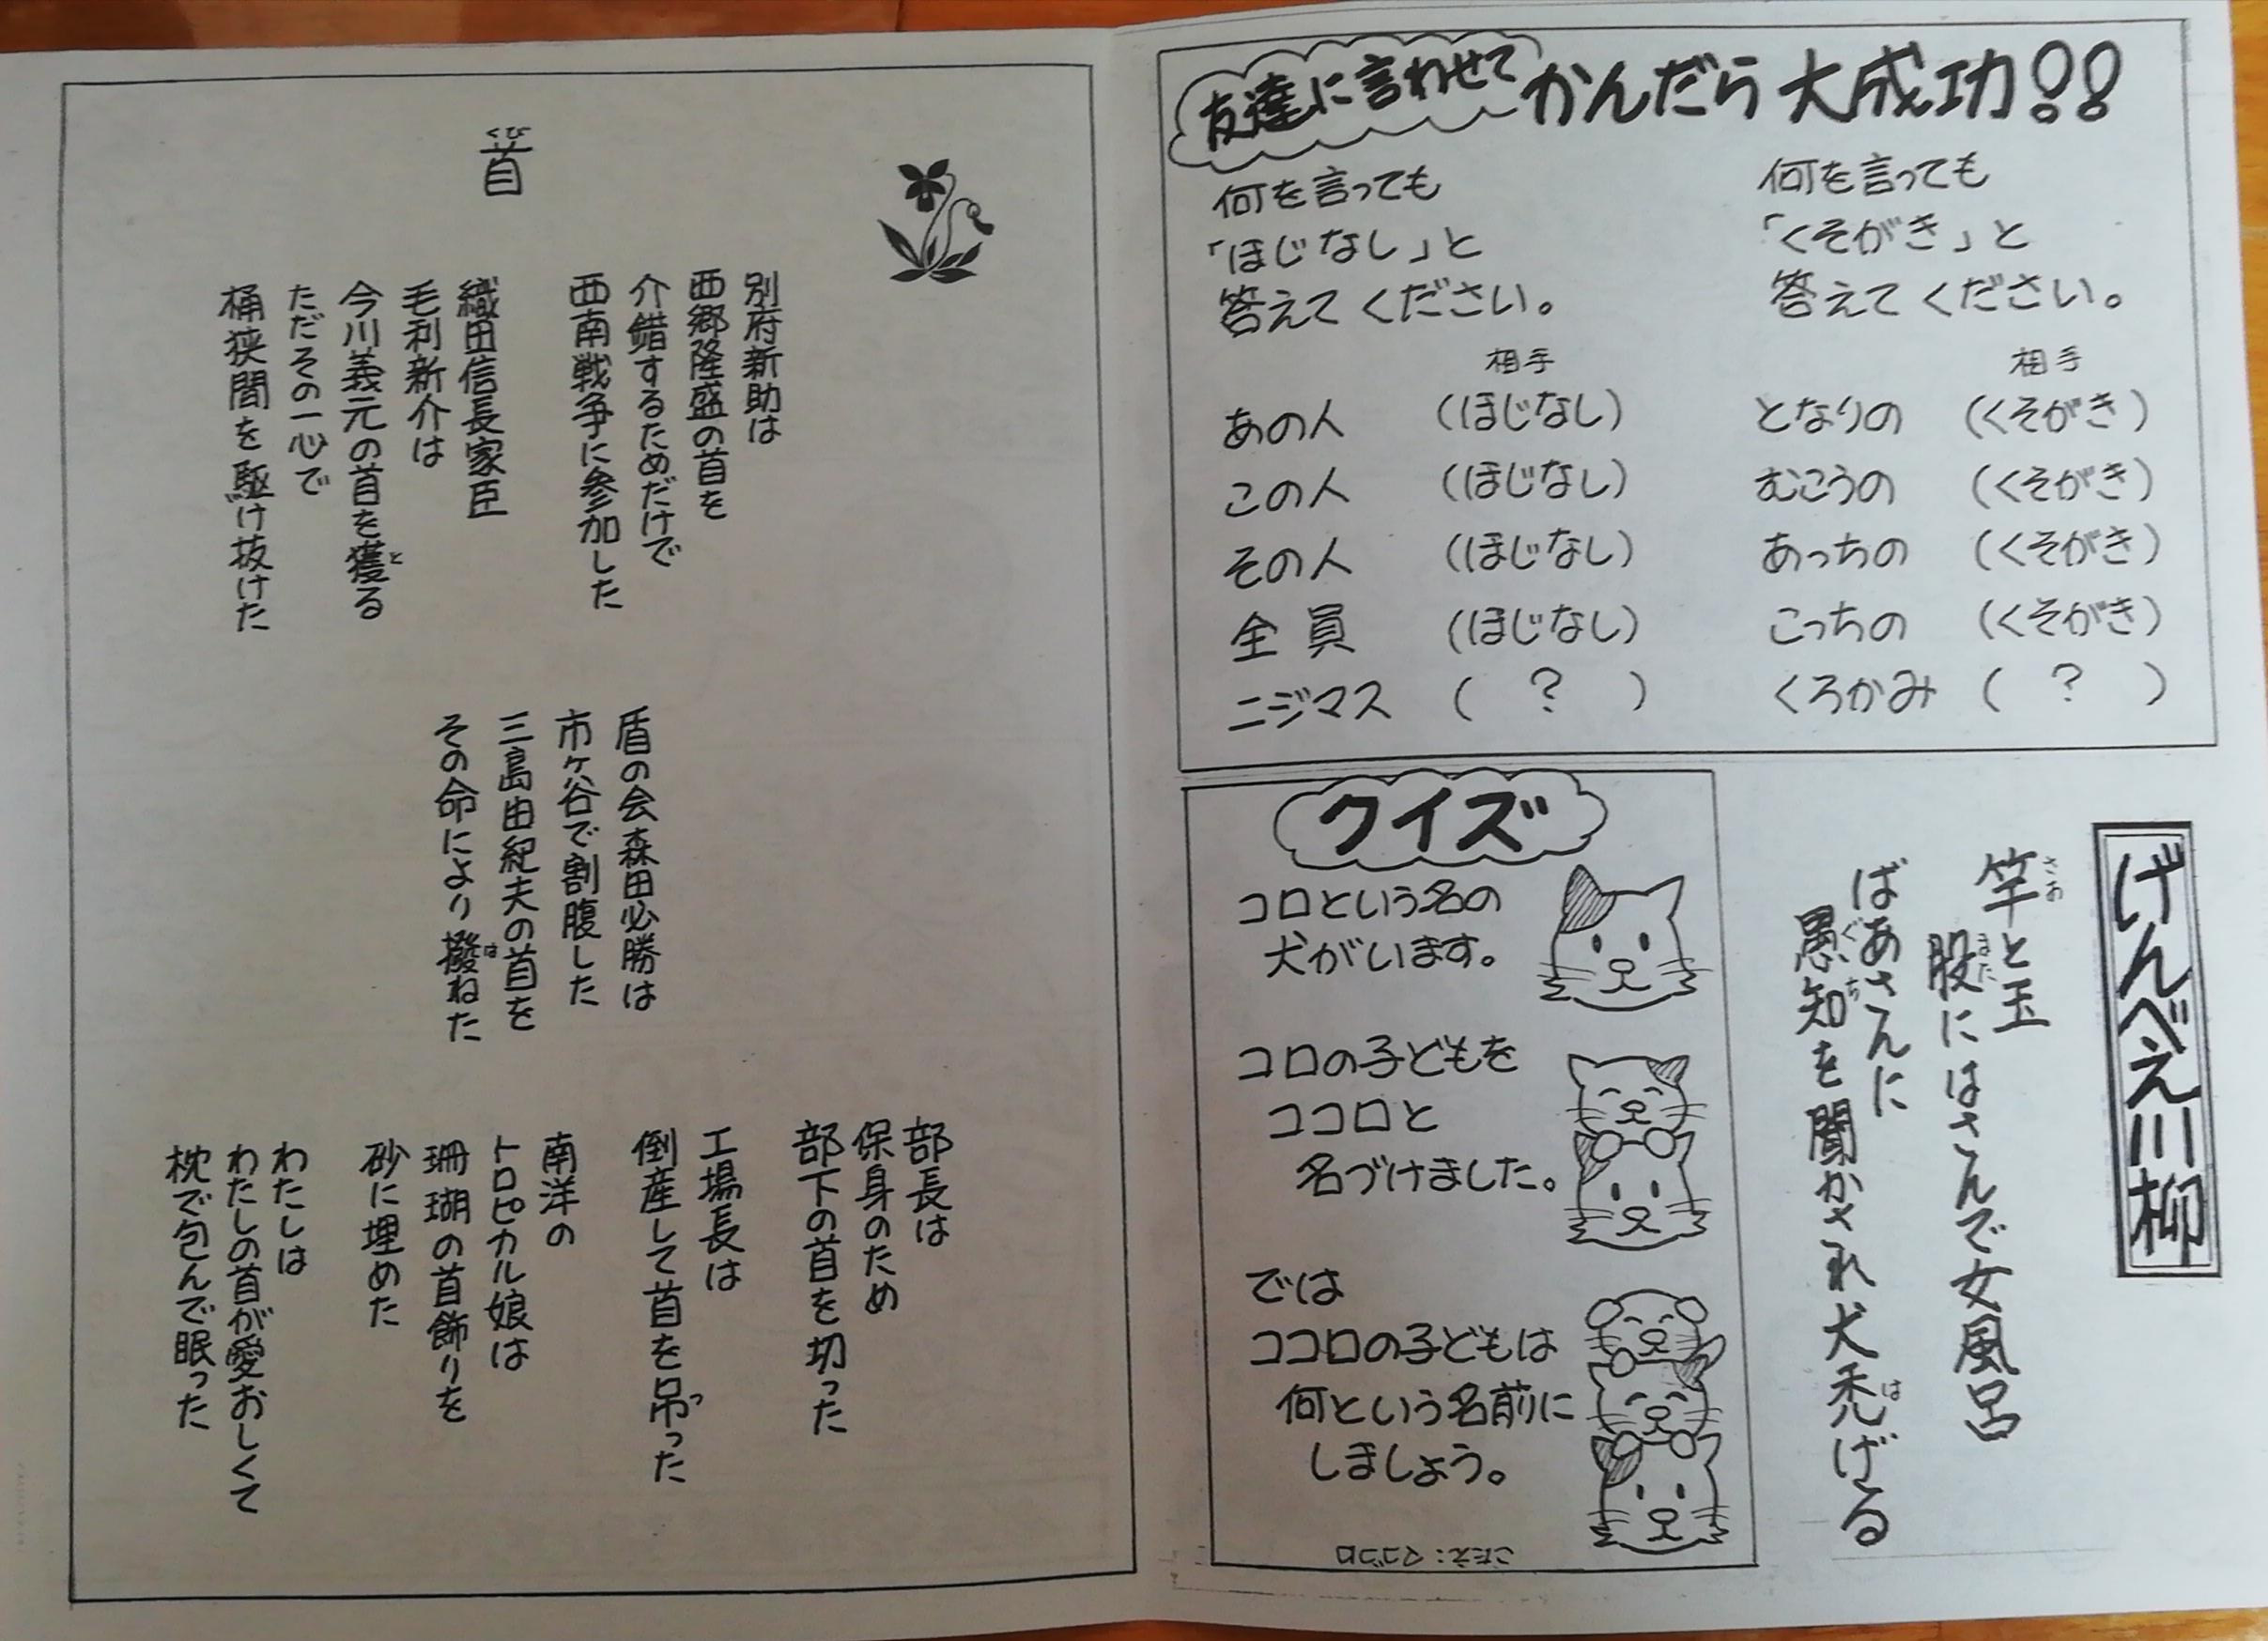 友達に言わせて かんだら大成功!!
何を言っても
「ほじなし」と
答えてください。
相手
あの人 (ほじなし)
この人 (ほじなし)
その人 (ほじなし)
全員 (ほじなし)
ニジマス ( ? )
何を言っても
「くそがき」と
答えてください。
相手
となりの (くそがき)
むこうの (くそがき)
あっちの (くそがき)
こっちの (くそがき)
くろかみ ( ? )
げんべえ川柳
竿と玉
さお
股にはさんで女風呂
また
ばあさんに
愚知を聞かされ犬禿げる
ぐち
は
クイズ
コロという名の
犬がいます。
コロの子どもを
ココロと
名づけました。
では
ココロの子どもは
何という名前に
しましょう。
こたえ:マゴコロ
首
くび
別府新助は
西郷隆盛の首を
介錯するためだけで
西南戦争に参加した
織田信長家臣
毛利新介は
今川義元の首を獲る
と
ただその一心で
桶狭間を駆け抜けた
盾の会森田必勝は
市ヶ谷で割腹した
三島由紀夫の首を
その命により撥ねた
は
部長は
保身のため
部下の首を切った
工場長は
倒産して首を吊った
つ
南洋の
トロピカル娘は
珊瑚の首飾りを
砂に埋めた
わたしは
わたしの首が愛おしくて
枕で包んで眠った